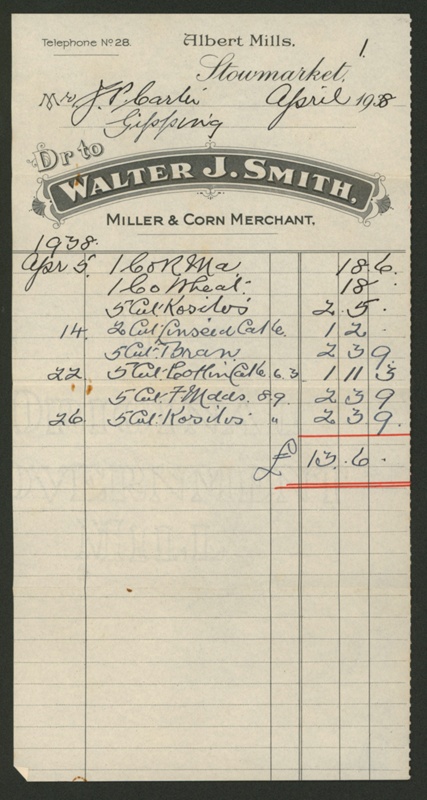 Telephone Nº 28.
Albert Mills.
1.
Stowmarket,
April 1938
Mr J. P. Carter
Gipping
Dr to
WALTER J. SMITH.
MILLER & CORN MERCHANT.
1938.
Apr 5. 1 Co R Ma 18.6.
1 Co Wheat. 18
5 Cwt Kositos 2. 5.
14. 2 Cwt Linseed Cake. 1 2 .
5 Cwt. Bran 2 3 9.
22 5 Cwt. Cake 6.3 1 11 3
5 Cwt. 8.9. 2 3 9
26 5 Cwt. Kositos " 2 3 9.
£ 13. 6.